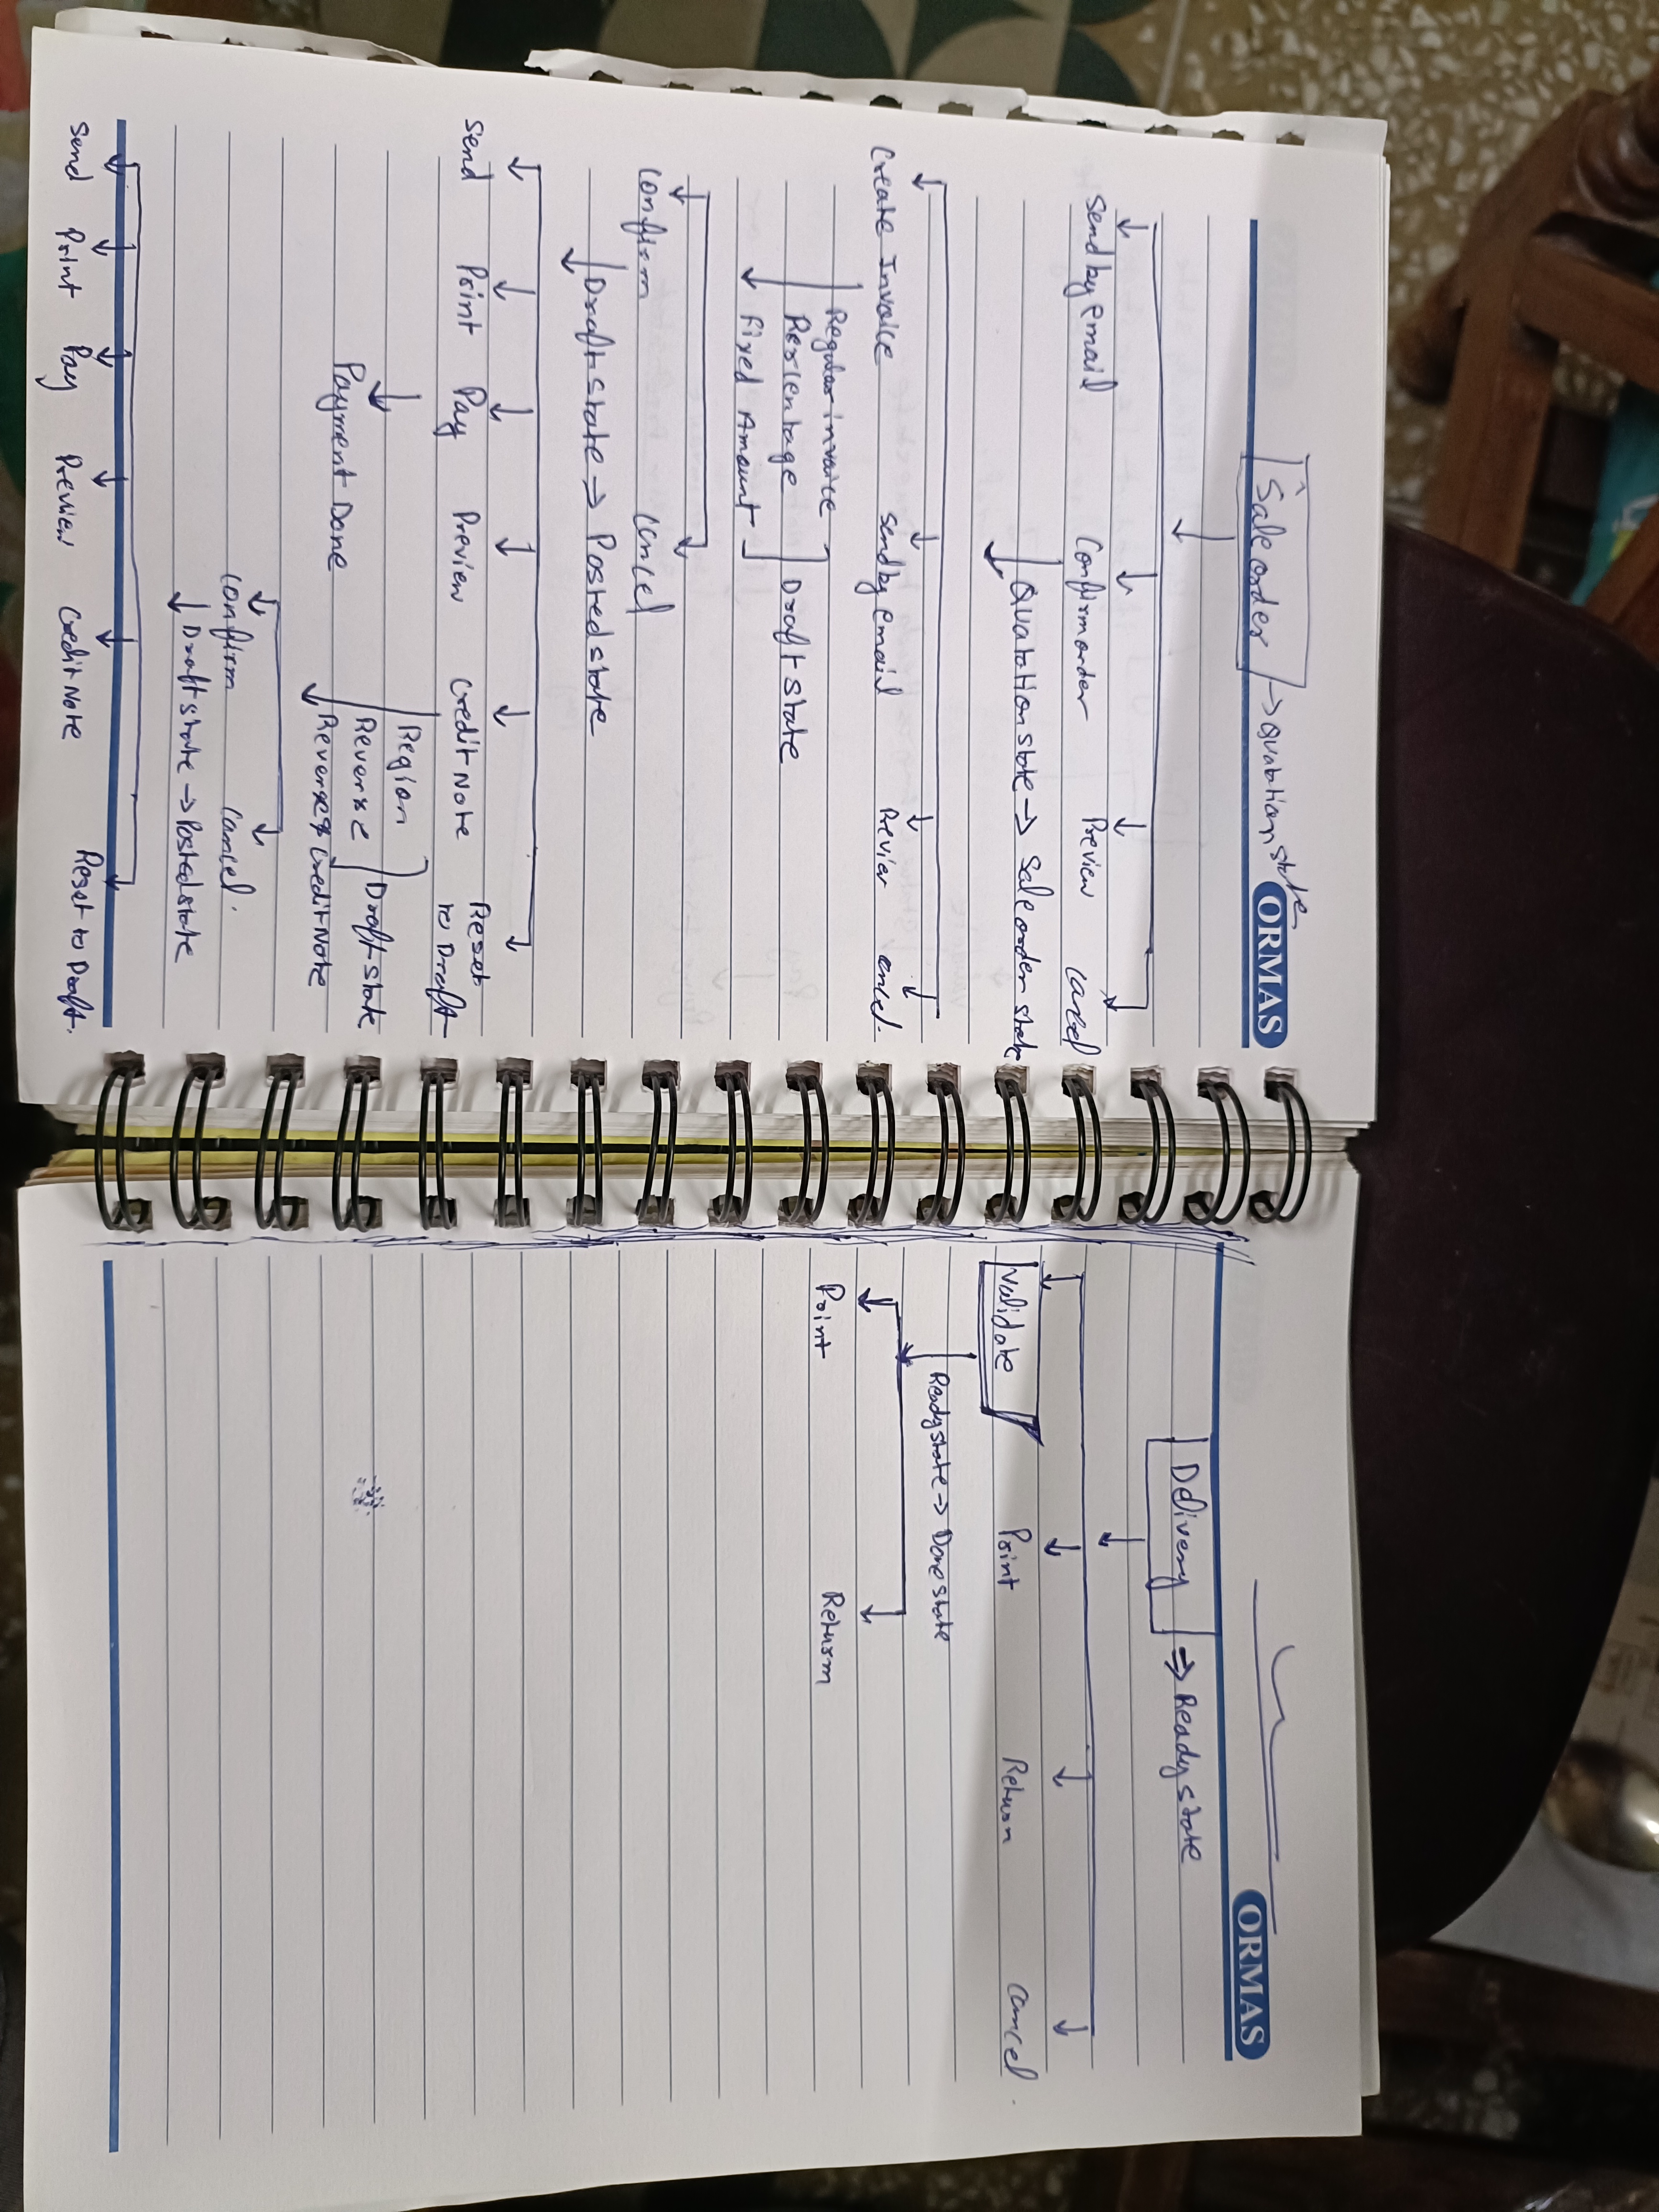 Sale order → Quatation state
ORMAS
Send by email Confirm order Preview cancel
Quatation state → Sale order state
Create Invoice Send by email Previer cancel.
Regular invoice
Percentage
Fixed Amount
Draft state
Confirm Cancel
Draft state ⇒ Posted state
Send Print Pay Preview Credit Note Reset to Draft
Payment Done
Region
Reverse
Reverse & Credit Note
Draft state
Confirm Cancel.
Draft state → Posted state
Send Print Pay Preview Credit Note Reset to Draft.
ORMAS
Delivery ⇒ Ready state
Validate Print Return Cancel.
Ready state → Done state
Print Return